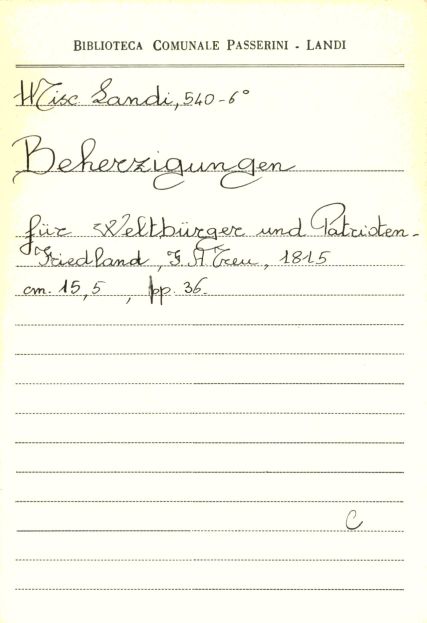 BIBLIOTECA COMUNALE PASSERINI - LANDI
Misc Landi, 540-6°
Beherzigungen
für Weltbürger und Patrioten-
Friedland, J. A Treu, 1815
cm. 15,5 , pp. 36.
C